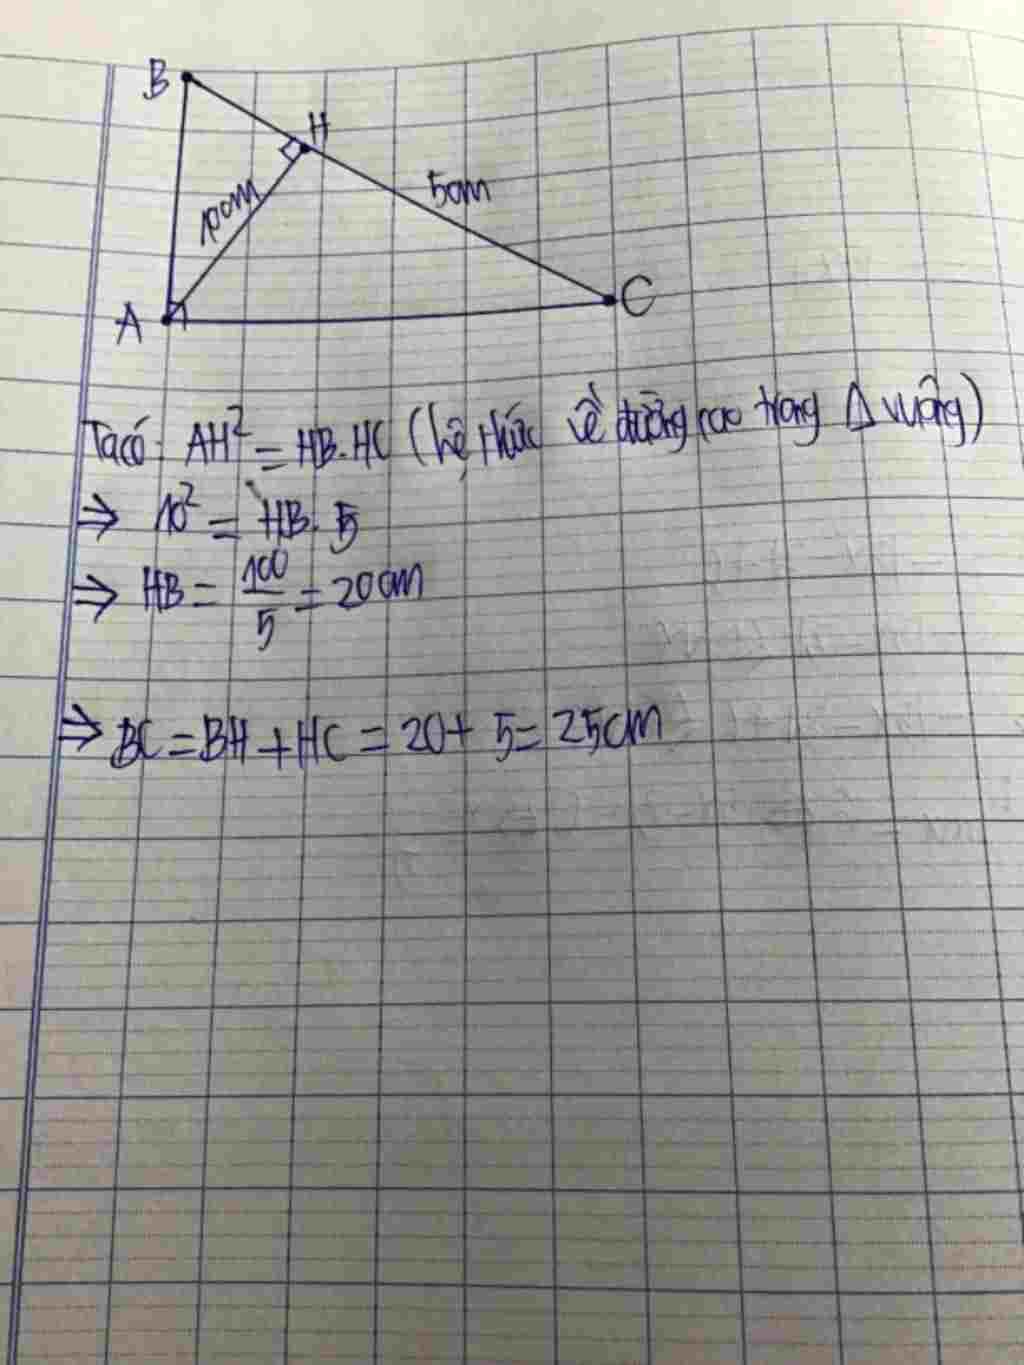 B
H
10cm
5cm
A
C
Ta có: AH² = HB.HC (hệ thức về đường cao trong Δ vuông)
⇒ 10² = HB. 5
⇒ HB = 100/5 = 20cm
⇒ BC = BH + HC = 20 + 5 = 25cm